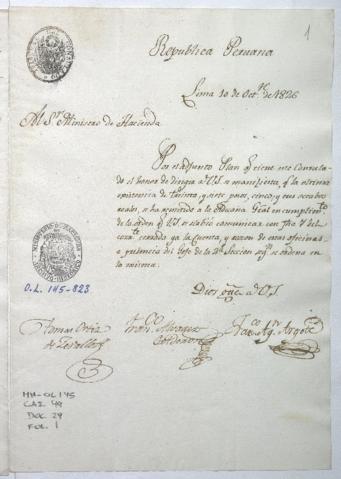 1
Republica Peruana
Lima 10 de Oct.e de 1826
Al S.r Ministro de Hacienda
Por el adjunto Plan q.e tiene esta Contadu
el honor de dirigir a V.S. se manifiesta, q.e la
existencia de treinta, y siete pesos, cinco, y seis octabos
reales, se ha remitido a la Aduana Gral en cumplim.to
de la orden q.e V.S. se sirbió comunicar con fha 7 del
corr.te cerrando ya la Cuenta, y razon de estas oficinas
a presencia del Gefe de la 2.a Seccion seg.n se ordena en
la misma.
Dios gue. a V.S.
O.L. 145-823
Tomas Ortiz
de Zevallos
Fran.co Alvarez
Calderon
Fran.co Ag.n Argote
MH-OL145
CAJ. 49
DOC. 29
FOL. 1